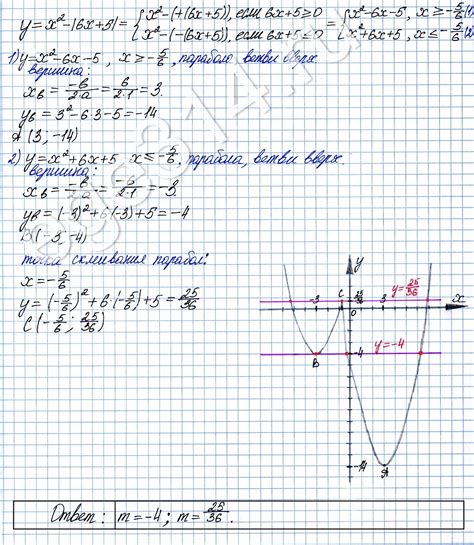 y=x²-|6x+5|= { x²-(+(6x+5)), если 6x+5≥0 = { x²-6x-5, x≥-5/6 (1)
{ x²-(-(6x+5)), если 6x+5≤0 { x²+6x+5, x≤-5/6 (2)
1) y=x²-6x-5, x≥-5/6, парабола, ветви вверх
вершина:
xв = -b/2a = 6/2·1 = 3.
yв = 3²-6·3-5=-14
A (3, -14)
2) y=x²+6x+5, x≤-5/6, парабола, ветви вверх.
вершина:
xв = -b/2a = -6/2·1 = -3.
yв = (-3)²+6(-3)+5=-4
B (-3, -4)
точка склеивания парабол:
x=-5/6
y = (-5/6)²+6·(-5/6)+5 = 25/36
C (-5/6; 25/36)
y
y=25/36
C
25/36
-3
3
x
0
y=-4
-4
B
-14
A
Ответ: m=-4; m=25/36.